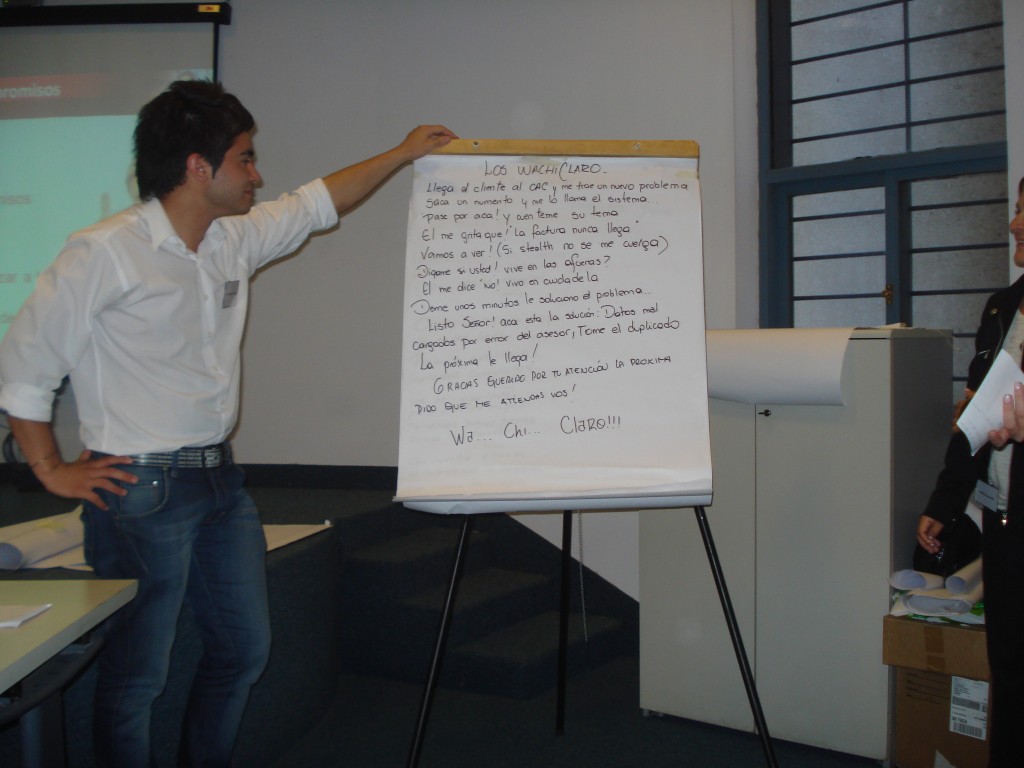 romisos
LOS WACHICLARO.
Llega el cliente al CAC y me trae un nuevo problema
Saca un numento y me lo llama el sistema...
Pase por aca! y cuenteme su tema
El me grita que! "La factura nunca llega"
Vamos a ver! (Si stealth no se me cuelga)
Digame si usted! vive en las afueras?
El me dice "No! vivo en caudadela
Deme unos minutos le soluciono el problema...
Listo Señor! aca esta la solución: Datos mal
cargados por error del asesor, Tome el duplicado
La próxima le llega!
GRACIAS QUERIDO POR TU ATENCIÓN LA PROXIMA
PIDO QUE ME ATIENDAS VOS!
Wa... Chi... Claro!!!